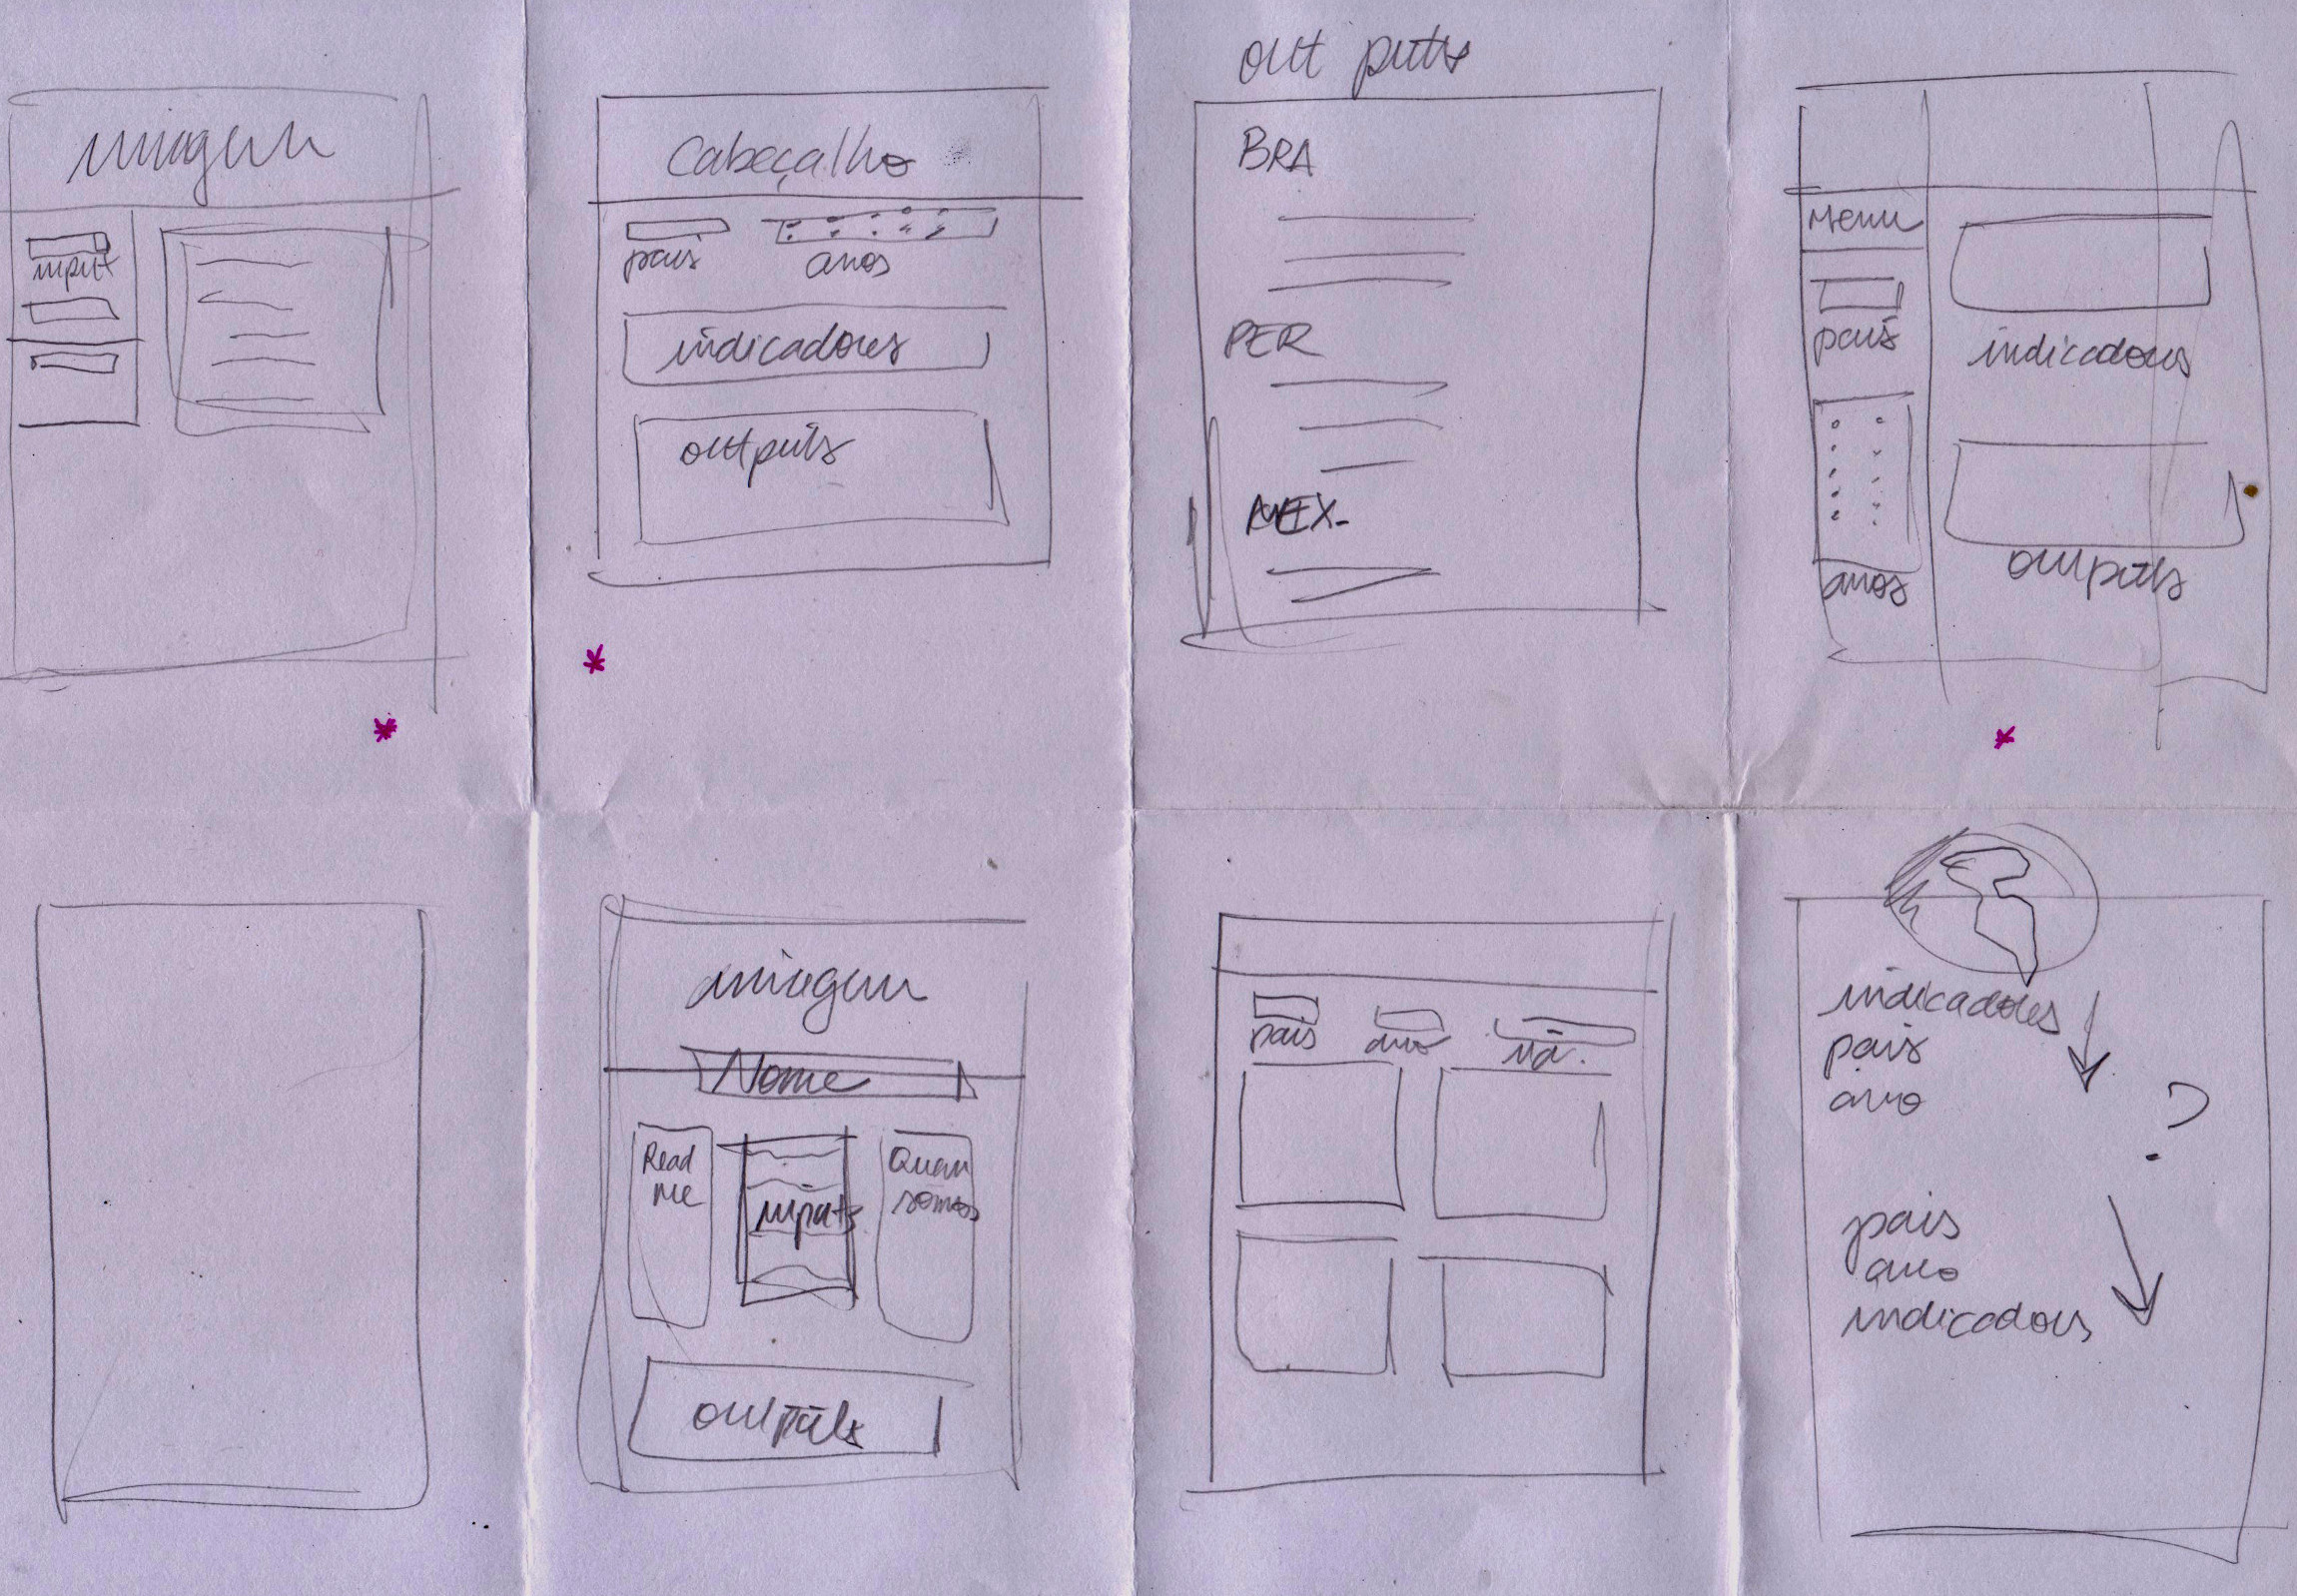 imagem
input
Cabeçalho
país
anos
indicadores
outputs
out puts
BRA
PER
MEX-
Menu
país
indicadores
anos
outputs
imagem
Nome
Read
me
inputs
Quem
somos
outputs
país
ano
ind.
indicadores
país
ano
?
país
ano
indicadores